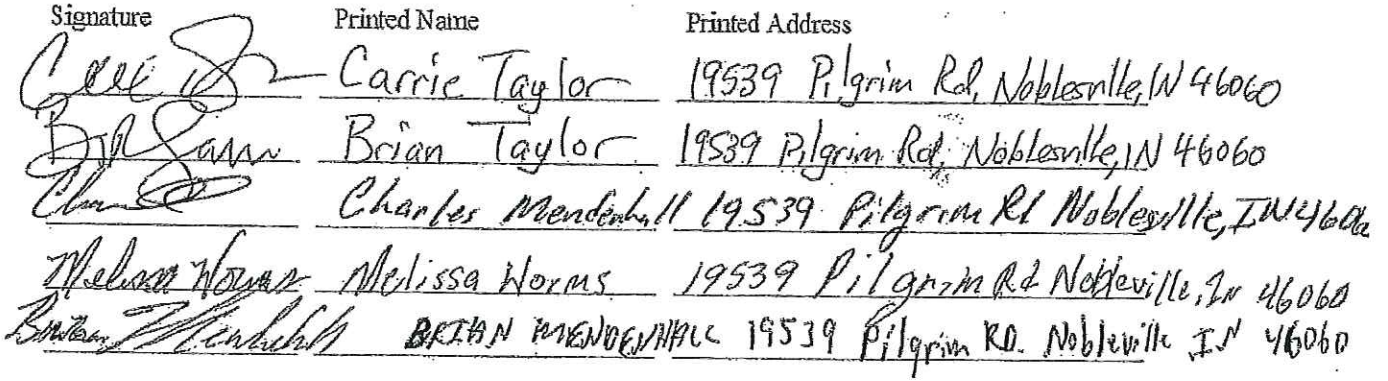 Signature Printed Name Printed Address
Carrie Taylor 19539 Pilgrim Rd, Noblesville, IN 46060
Brian Taylor 19539 Pilgrim Rd, Noblesville, IN 46060
Charles Mendenhall 19539 Pilgrim Rd Noblesville, IN 4606
Melissa Worms Melissa Worms 19539 Pilgrim Rd Nobleville, In 46060
Mendenhall BRIAN MENDENHALL 19539 Pilgrim RD. Nobleville IN 46060